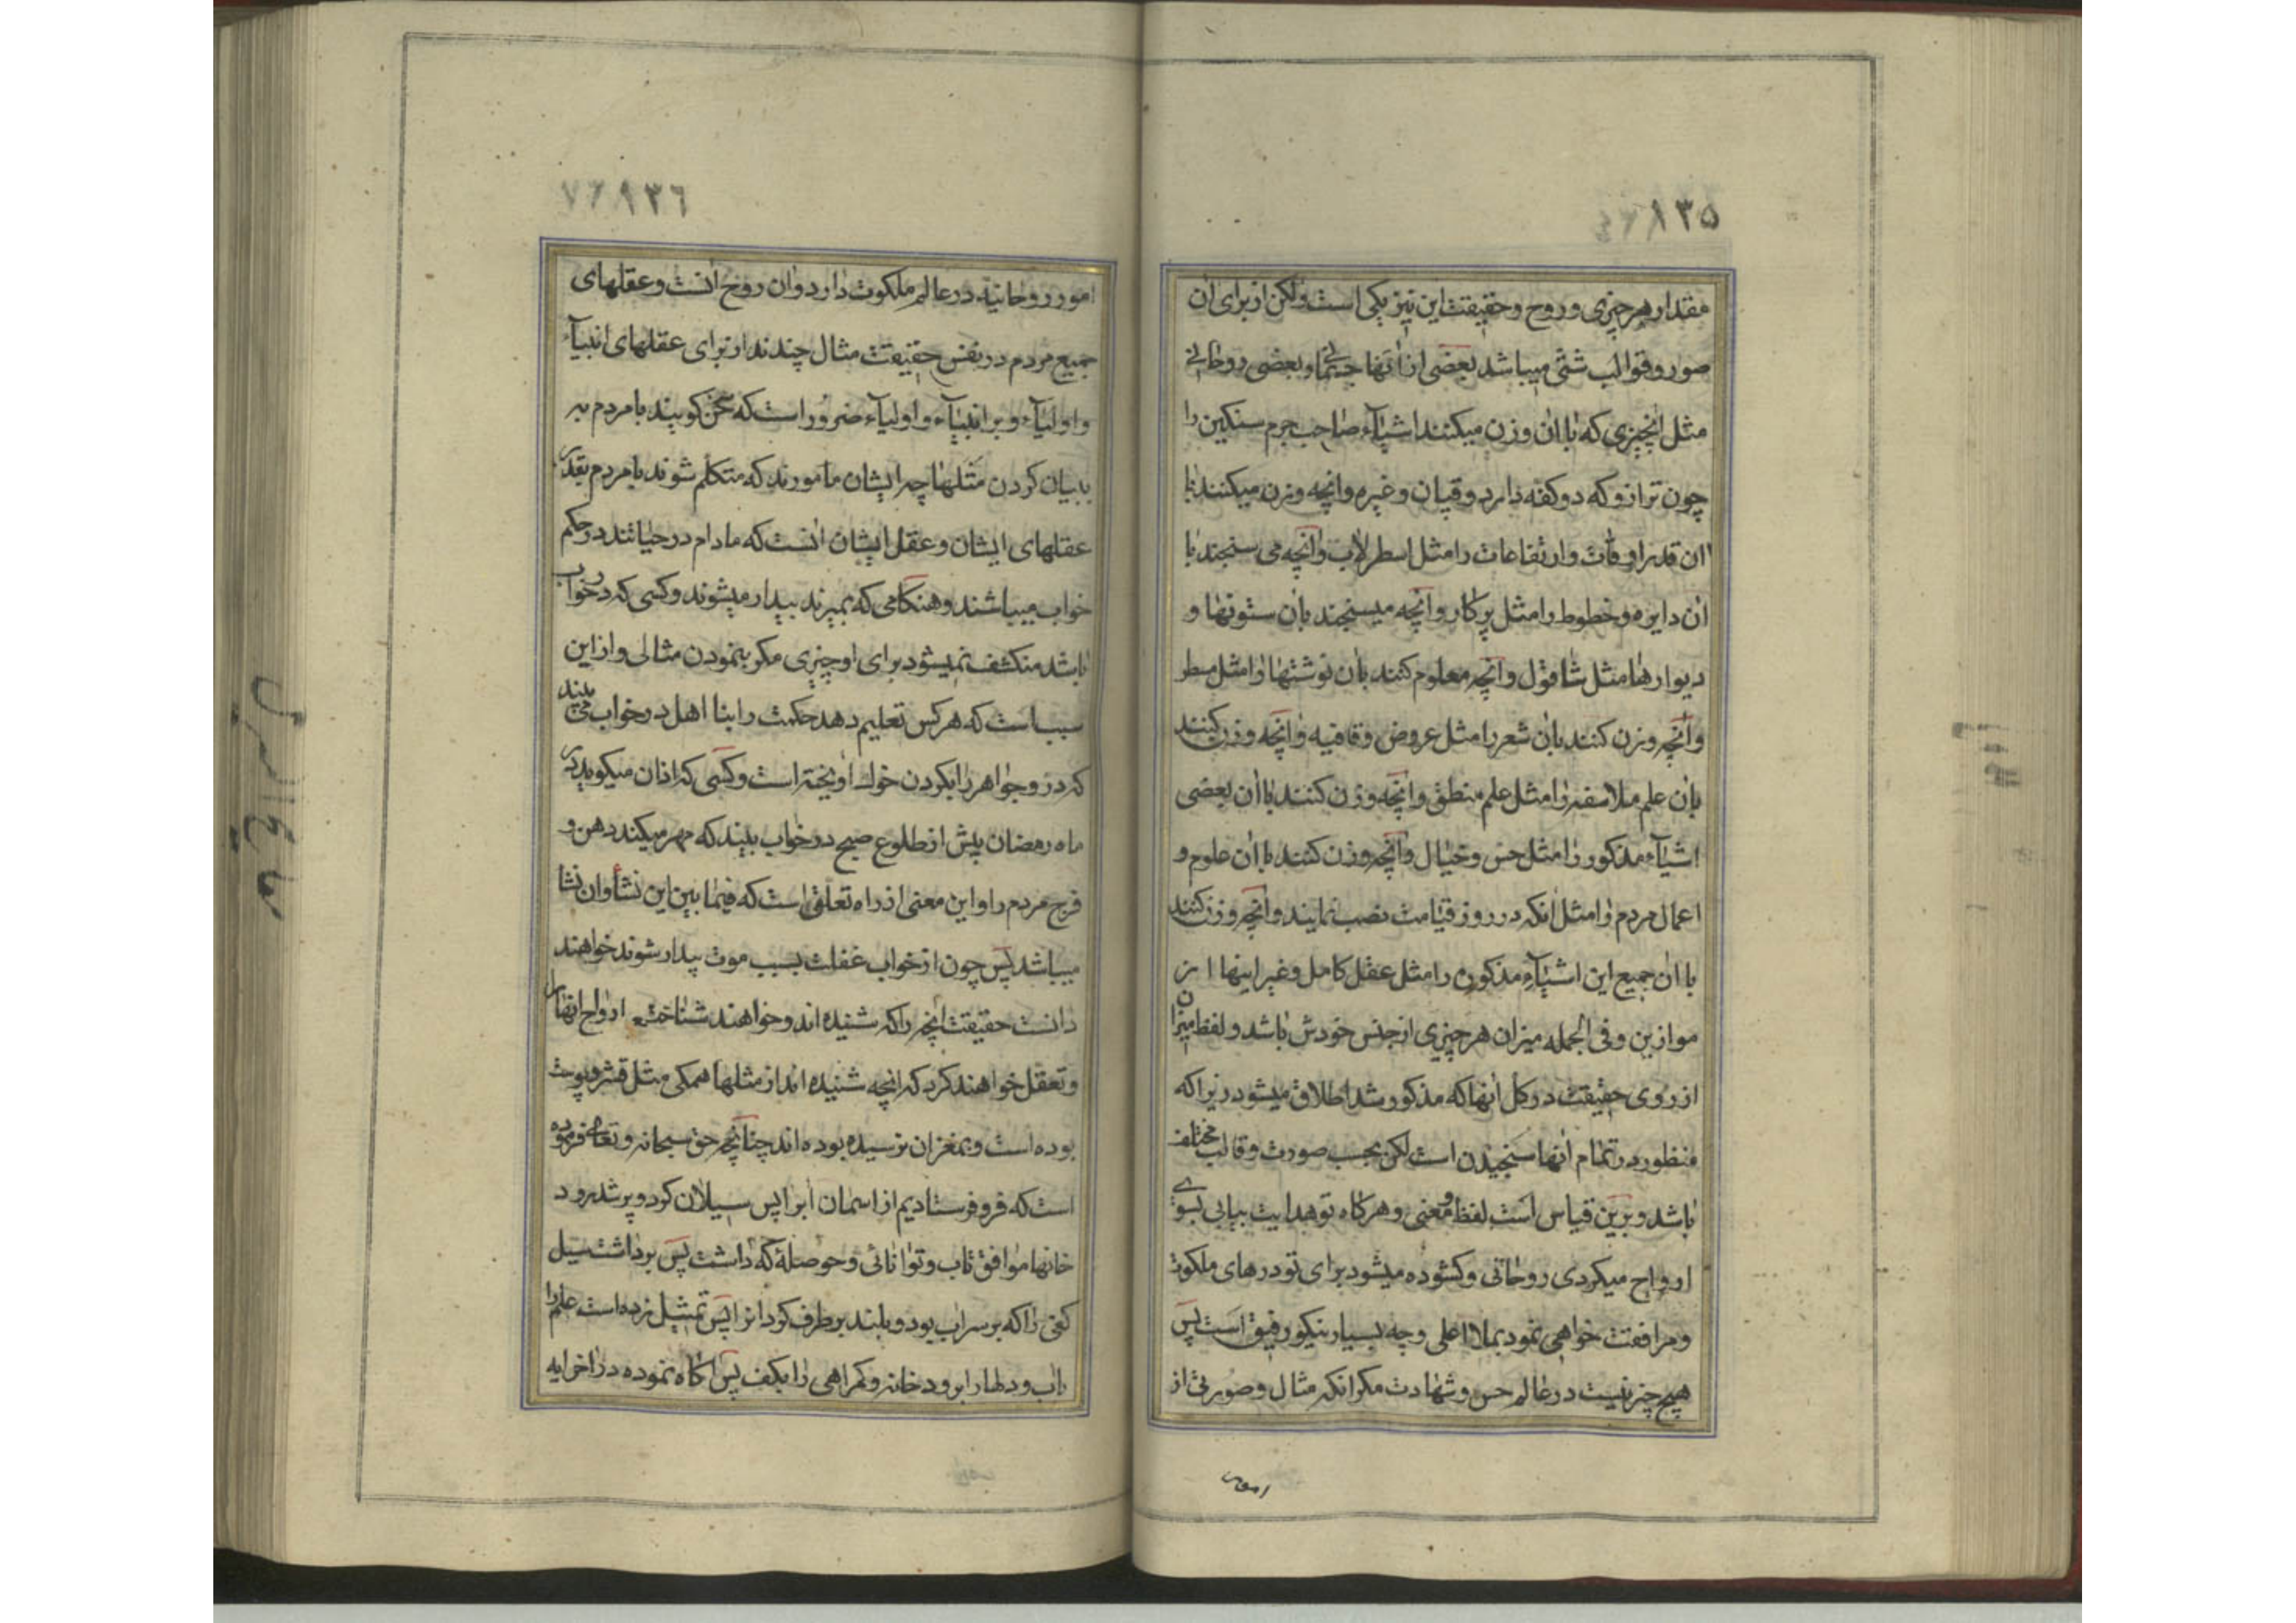 ١٣٥
مقدار هر چیزی و روح و حقیقت این نیز یکی است ولکن از برای ان
صور و قوالب شتی میباشد بعضی از انها جسمانی و بعضی روحانی
مثل انچیزی که با ان وزن میکنند اشیاء صاحب جرم سنکین را
چون ترازو که دو کفه دارد و قپان و غیره وانچه وزن میکنند با
ان قدر اوقات و ارتفاعات را مثل اسطرلاب وانچه می سنجند با
ان دایره و خطوط را مثل پرکار وانچه میسنجند بان ستونها و
دیوارها مثل شاقول وانچه معلوم کنند بان نوشتها را مثل مسطر
وانچه وزن کنند بان شعر را مثل عروض و قافیه وانچه وزن کنند
بان علم فلاسفه را مثل علم منطق وانچه وزن کنند با ان بعضی
اشیاء مذکور را مثل حس و خیال وانچه وزن کنند با ان علوم و
اعمال مردم را مثل انکه در روز قیامت نصب نمایند وانچه وزن کنند
با ان جمیع این اشیاء مذکوره را مثل عقل کامل و غیر اینها از
موازین و فی الجمله میزان هر چیزی از جنس خودش باشد و لفظ میزان
از روی حقیقت در کل انها که مذکور شد اطلاق میشود زیرا که
منظور در تمام انها سنجیدن است لکن بحسب صورت و قالب مختلف
باشد و برین قیاس است لفظ و معنی و هرکاه تو هدایت بیابی بسوی
ارواح میکردی روحانی و کشوده میشود برای تو درهای ملکوت
و مرافقت خواهی نمود بملا اعلی و چه بسیار نیکو رفیق است پس
هیچ چیز نیست در عالم حس و شهادت مکر انکه مثال و صورتی از
امور
١٣٦
امور روحانیه در عالم ملکوت دارد و ان روح انست و عقلهای
جمیع مردم در نفس حقیقت مثال چندند از برای عقلهای انبیاء
و اولیاء و بر انبیاء و اولیاء ضرور است که سخن کویند با مردم به
بیان کردن مثلها چه ایشان مامورند که متکلم شوند با مردم بقدر
عقلهای ایشان و عقل ایشان انست که مادام در حیاتند در حکم
خواب میباشند و هنکامی که بمیرند بیدار میشوند و کسی که در خواب
باشد منکشف نمیشود برای او چیزی مکر بنمودن مثالی و از این
سبب است که هرکس تعلیم دهد حکمت را بنا اهل در خواب می بیند
که در و جواهر را بکردن خوک اویخته است و کسی که اذان میکوید در
ماه رمضان پیش از طلوع صبح در خواب بیند که مهر میکند دهن و
فرج مردم را و این معنی از راه تعلق است که فیما بین این نشأ و ان نشا
میباشد پس چون از خواب غفلت بسبب موت بیدار شوند خواهند
دانست حقیقت انچه را که شنیده اند و خواهند شناخت ارواح انها را
و تعقل خواهند کرد که انچه شنیده اند از مثلها همکی مثل قشر و پوست
بوده است و بمغز ان نرسیده بوده اند چنانچه حق سبحانه و تعالی فرموده
است که فرو فرستادیم از اسمان اب را پس سیلان کرد و پر شد رود
خانها موافق تاب و توانائی و حوصلهٔ که داشت پس برداشت سیل
کفی را که بر سراب بود و بلند برطرف کود انرا پس تمثیل زده است علم را
باب و دلها را برود خانه و کمراهی را بکف پس اکاه نموده در اخر ایه